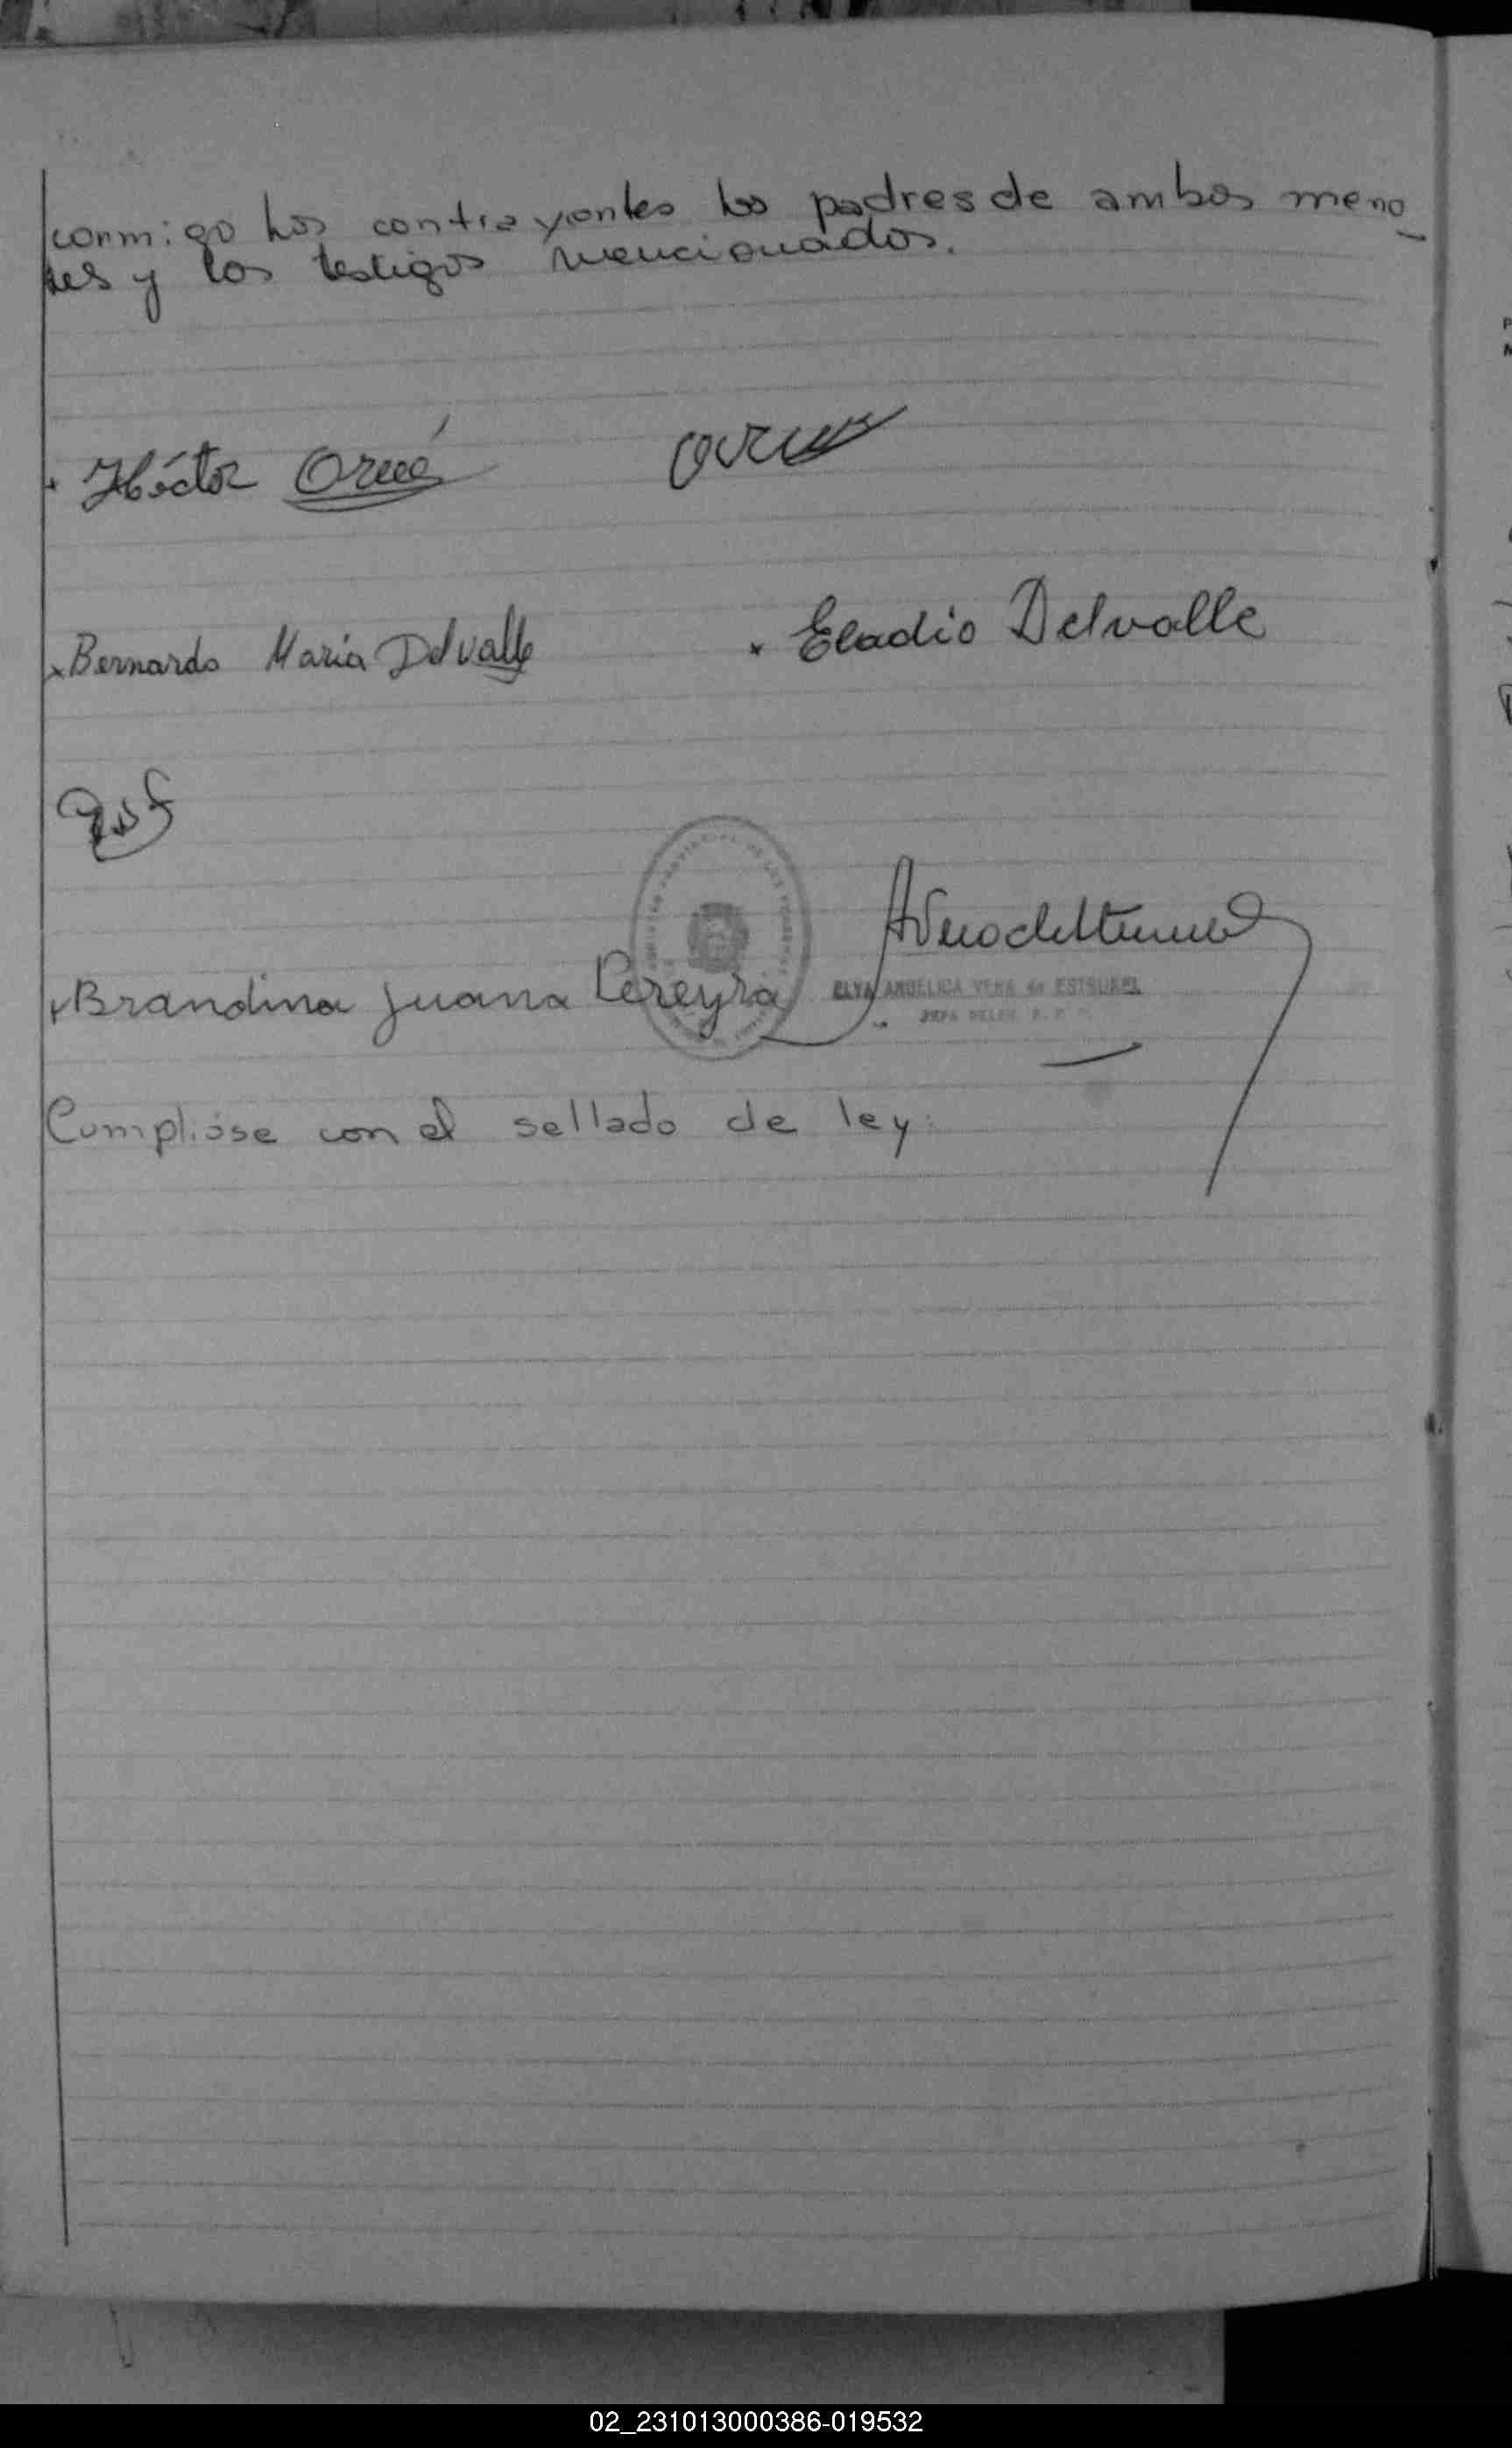 conmigo los contrayentes los padres de ambos meno_
res y los testigos mencionados.
Héctor Orué
x Bernardo Maria Delvalle
x Eladio Delvalle
x Brandina Juana Pereyra
ELVA ANGELICA VERA de ESTRUBEL
JEFA
Cumplióse con el sellado de ley.
02_231013000386-019532